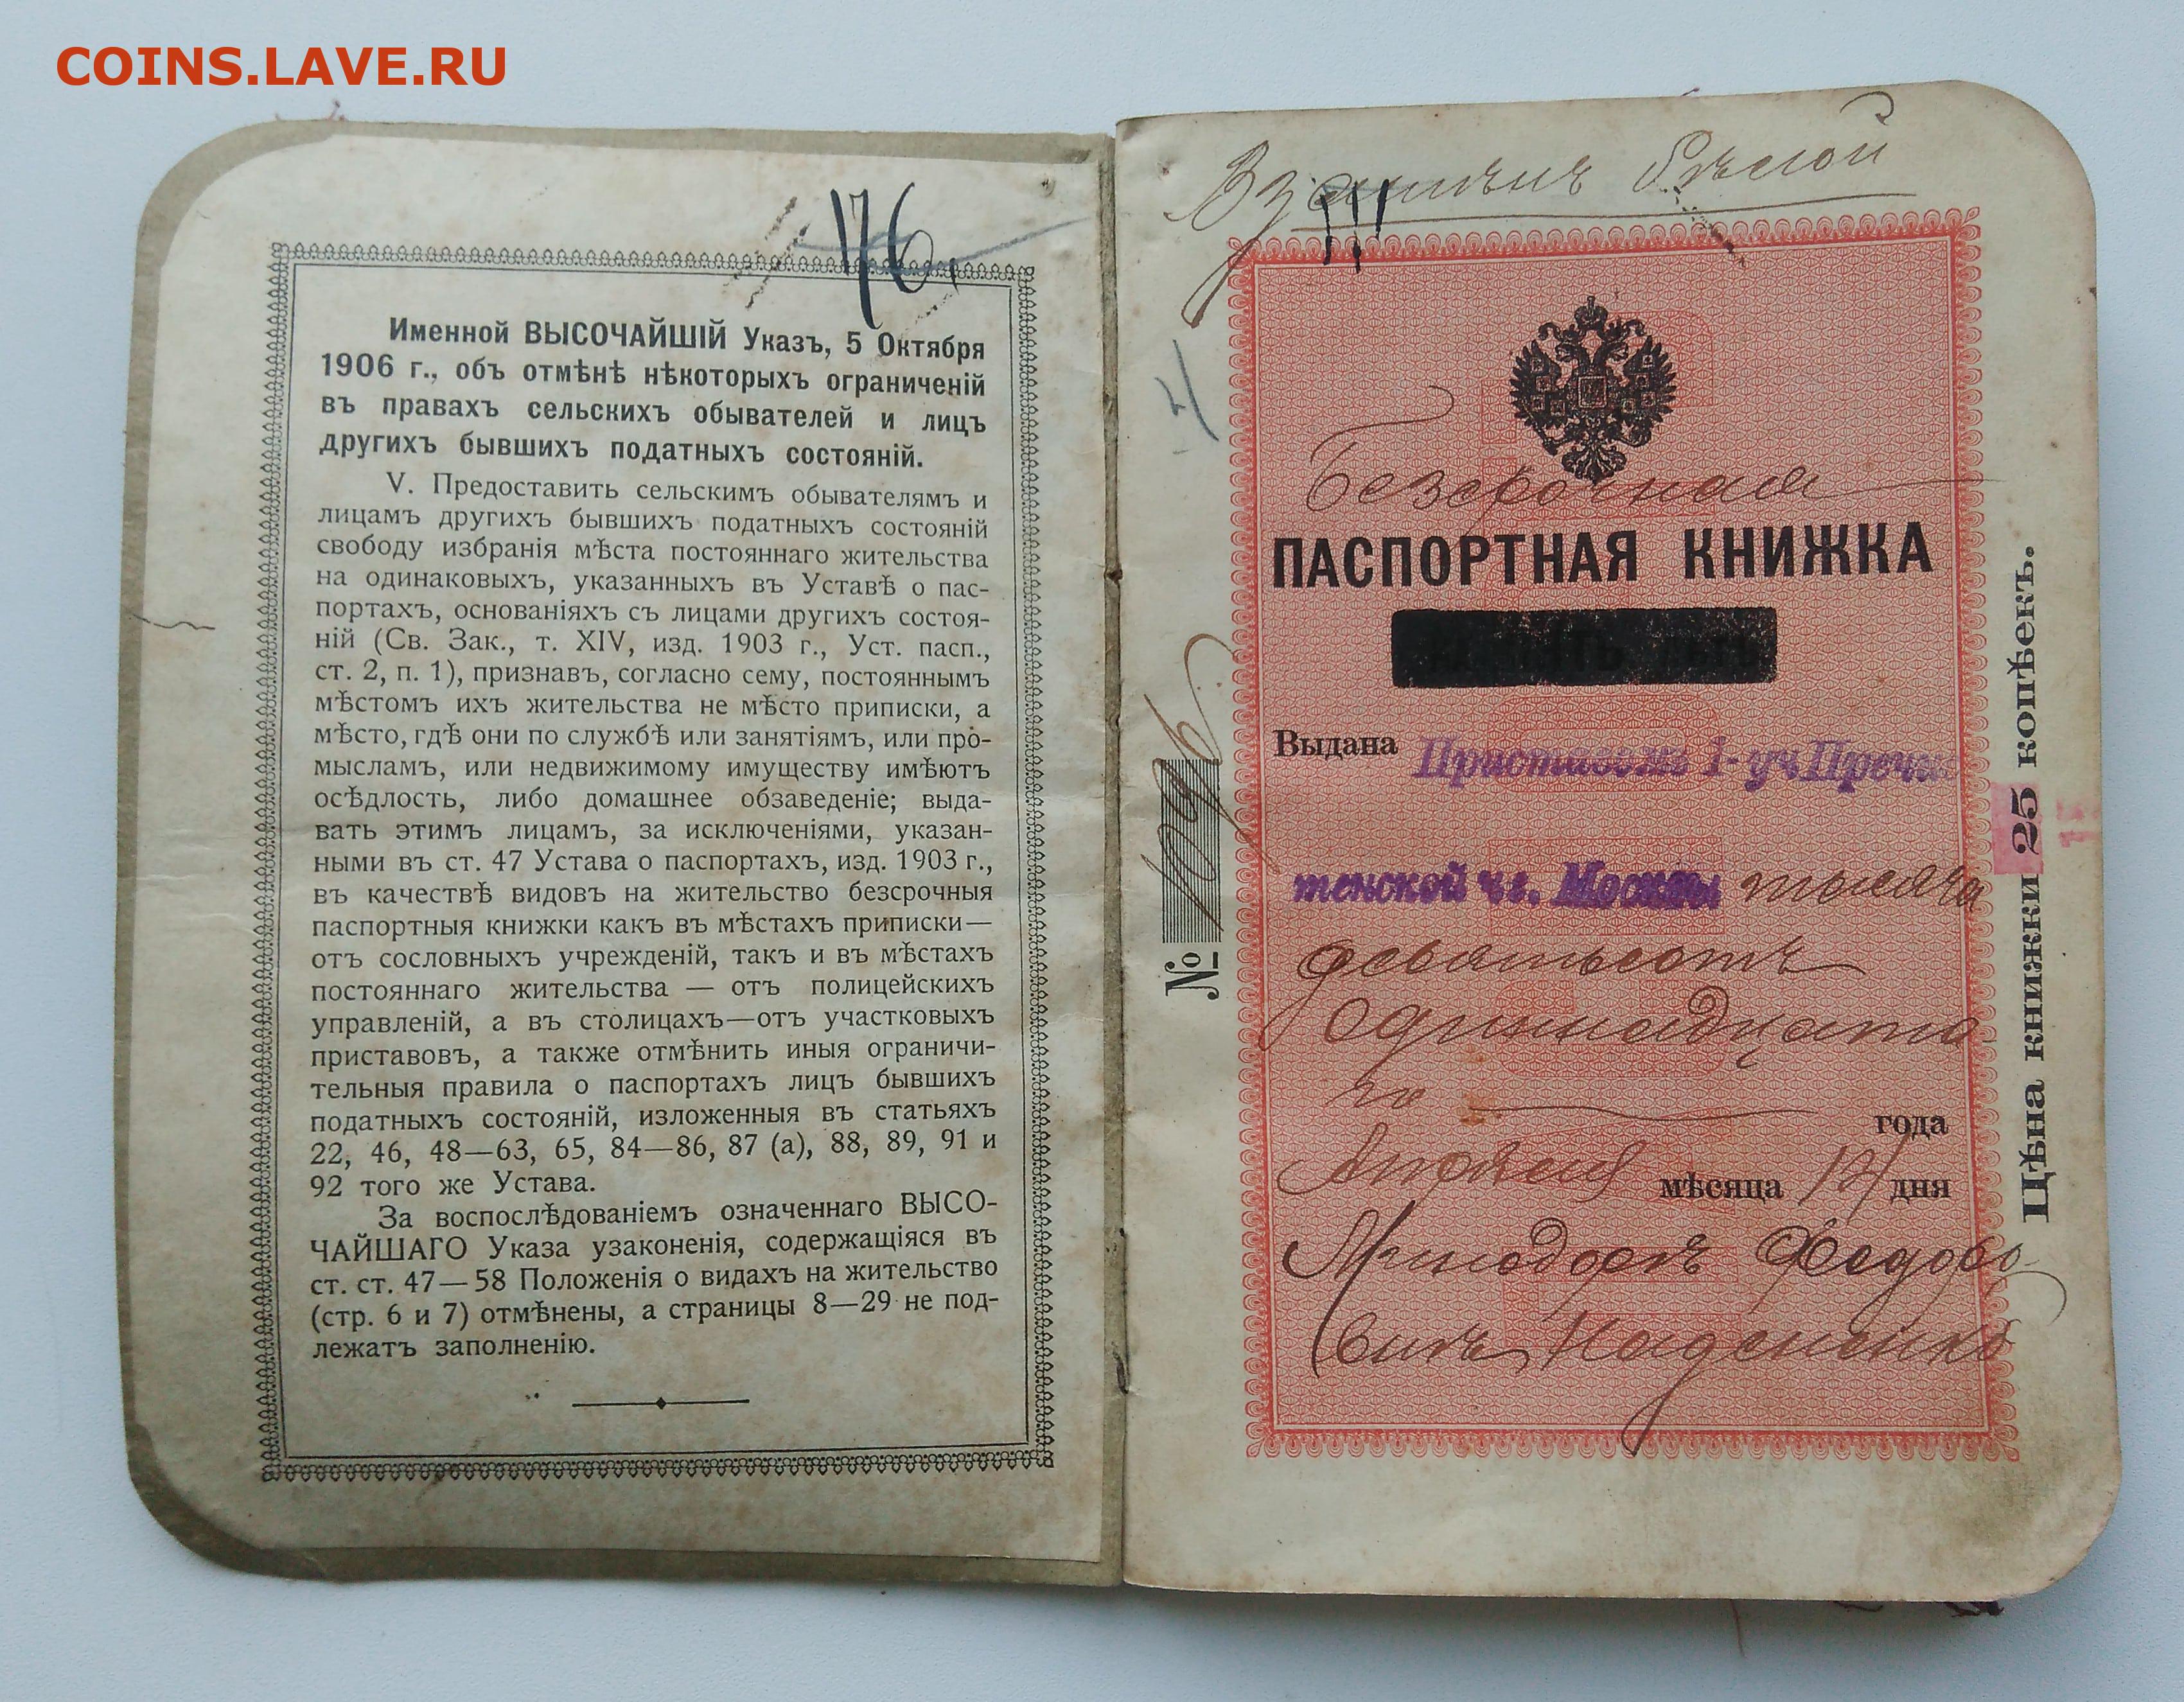 COINS.LAVE.RU
176.
Именной ВЫСОЧАЙШІЙ Указъ, 5 Октября
1906 г., объ отмѣнѣ нѣкоторыхъ ограниченій
въ правахъ сельскихъ обывателей и лицъ
другихъ бывшихъ податныхъ состояній.
V. Предоставить сельскимъ обывателямъ и
лицамъ другихъ бывшихъ податныхъ состояній
свободу избранія мѣста постояннаго жительства
на одинаковыхъ, указанныхъ въ Уставѣ о пас-
портахъ, основаніяхъ съ лицами другихъ состоя-
ній (Св. Зак., т. XIV, изд. 1903 г., Уст. пасп.,
ст. 2, п. 1), признавъ, согласно сему, постояннымъ
мѣстомъ ихъ жительства не мѣсто приписки, а
мѣсто, гдѣ они по службѣ или занятіямъ, или про-
мысламъ, или недвижимому имуществу имѣютъ
осѣдлость, либо домашнее обзаведеніе; выда-
вать этимъ лицамъ, за исключеніями, указан-
ными въ ст. 47 Устава о паспортахъ, изд. 1903 г.,
въ качествѣ видовъ на жительство безсрочныя
паспортныя книжки какъ въ мѣстахъ приписки—
отъ сословныхъ учрежденій, такъ и въ мѣстахъ
постояннаго жительства — отъ полицейскихъ
управленій, а въ столицахъ—отъ участковыхъ
приставовъ, а также отмѣнить иныя ограничи-
тельныя правила о паспортахъ лицъ бывшихъ
податныхъ состояній, изложенныя въ статьяхъ
22, 46, 48—63, 65, 84—86, 87 (а), 88, 89, 91 и
92 того же Устава.
За воспослѣдованіемъ означеннаго ВЫСО-
ЧАЙШАГО Указа узаконенія, содержащіяся въ
ст. ст. 47—58 Положенія о видахъ на жительство
(стр. 6 и 7) отмѣнены, а страницы 8—29 не под-
лежатъ заполненію.
Взамѣнъ
Безсрочная
ПАСПОРТНАЯ КНИЖКА
Выдана Приставомъ 1 уч. Пречис
тенской ч. г. Москвы тысяча
девятьсотъ
Одиннадцата
го года
Апрѣля мѣсяца 12 дня
Минодоръ Федоро
вичъ
№
Цѣна книжки 25 копѣекъ.